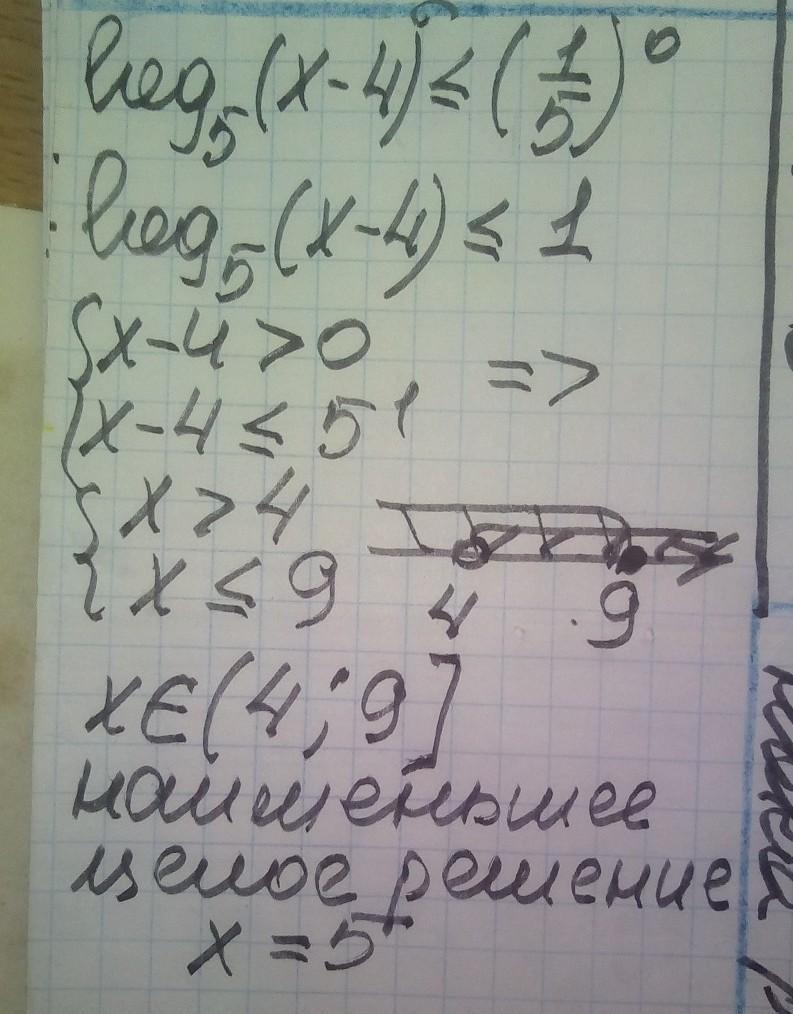 log₅(x-4) ≤ (1/5)⁰
log₅(x-4) ≤ 1
{x-4 > 0
{x-4 ≤ 5¹ =>
{x > 4
{x ≤ 9
4 9
x∈(4;9]
наименьшее
целое решение
x = 5